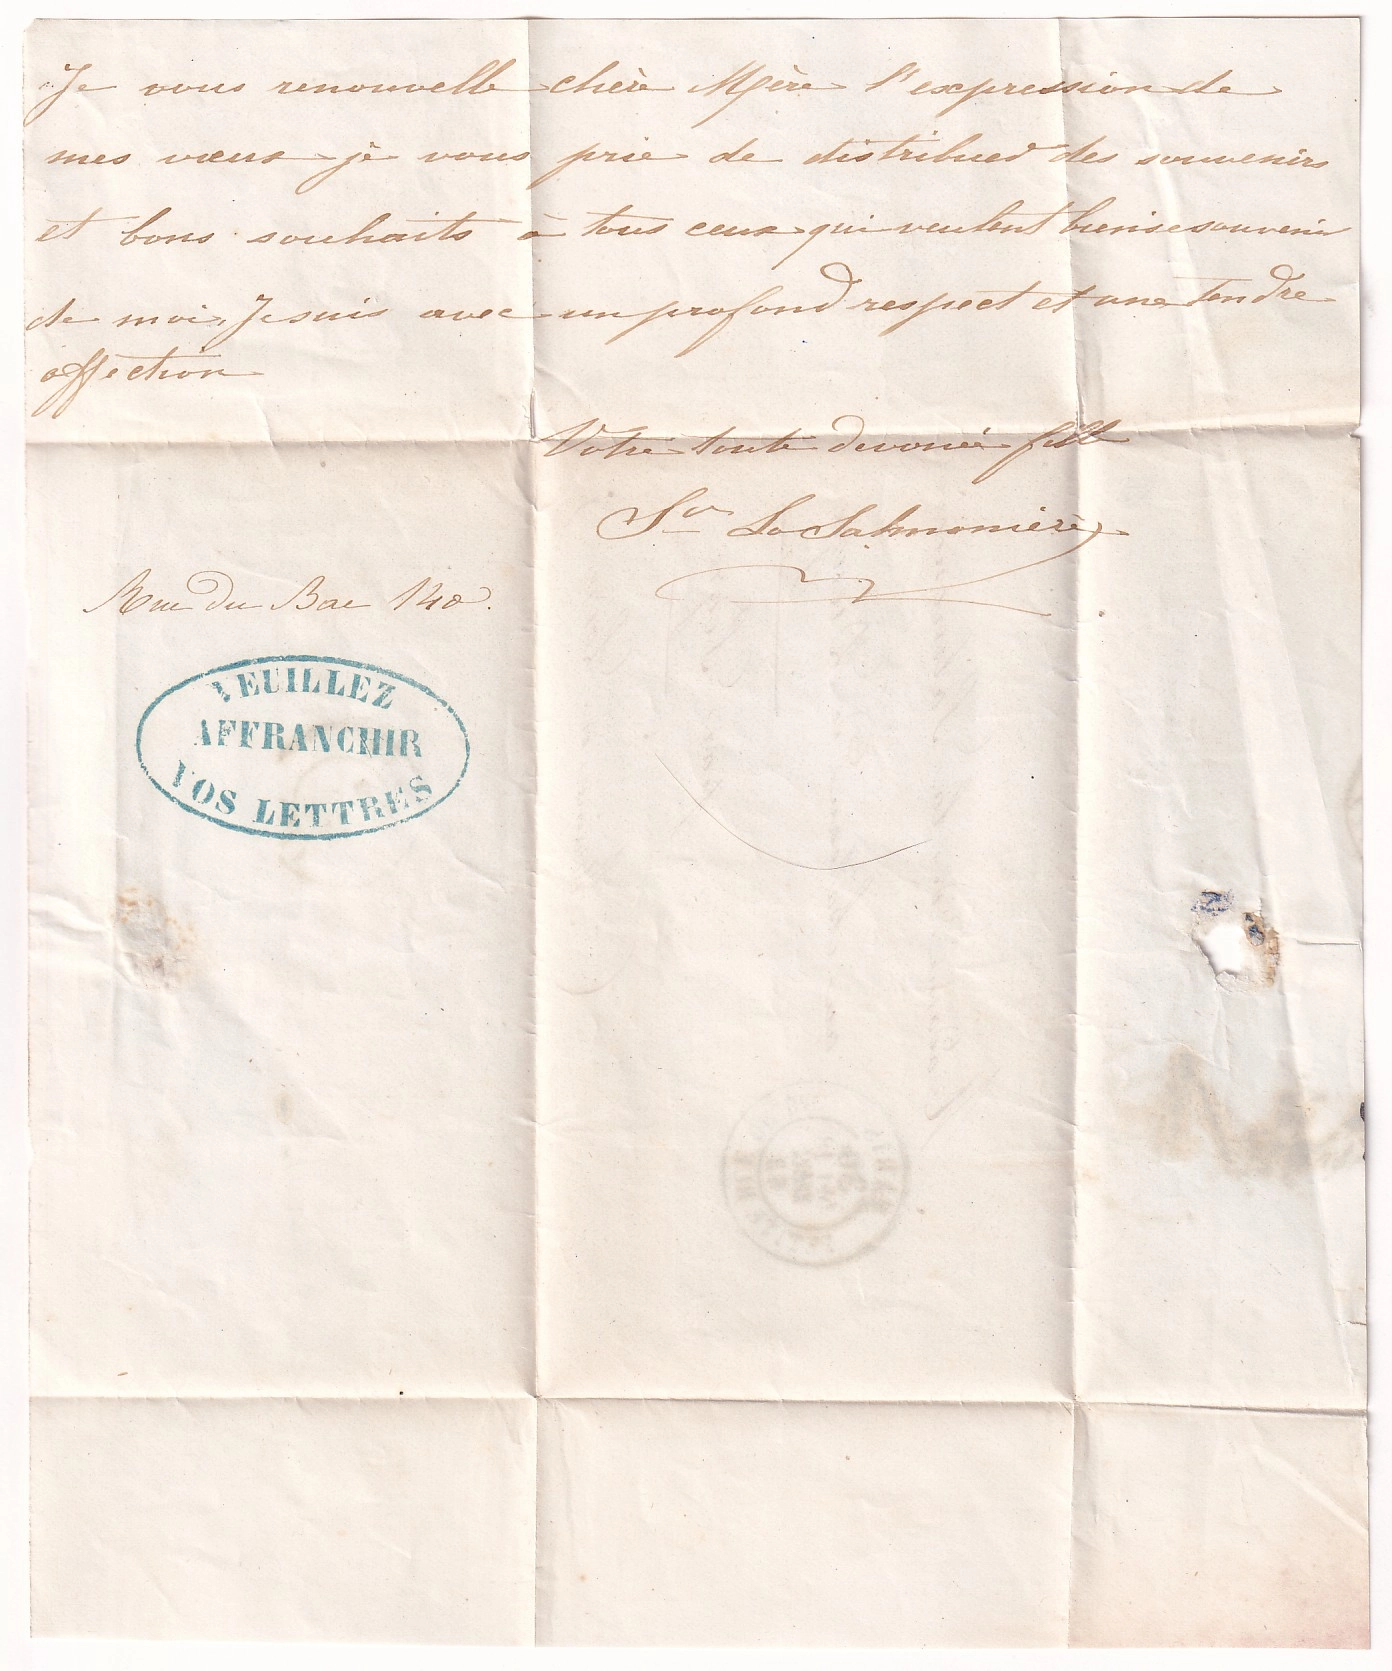 Je vous renouvelle chère Mère l'expression de
mes vœux je vous prie de distribuer des souvenirs
et bons souhaits à tous ceux qui veulent bien se souvenir
de moi, Je suis avec un profond respect et une tendre
affection
Votre toute devouée fille
Sr La Salmonière
Rue du Bac 140.
VEUILLEZ
AFFRANCHIR
VOS LETTRES